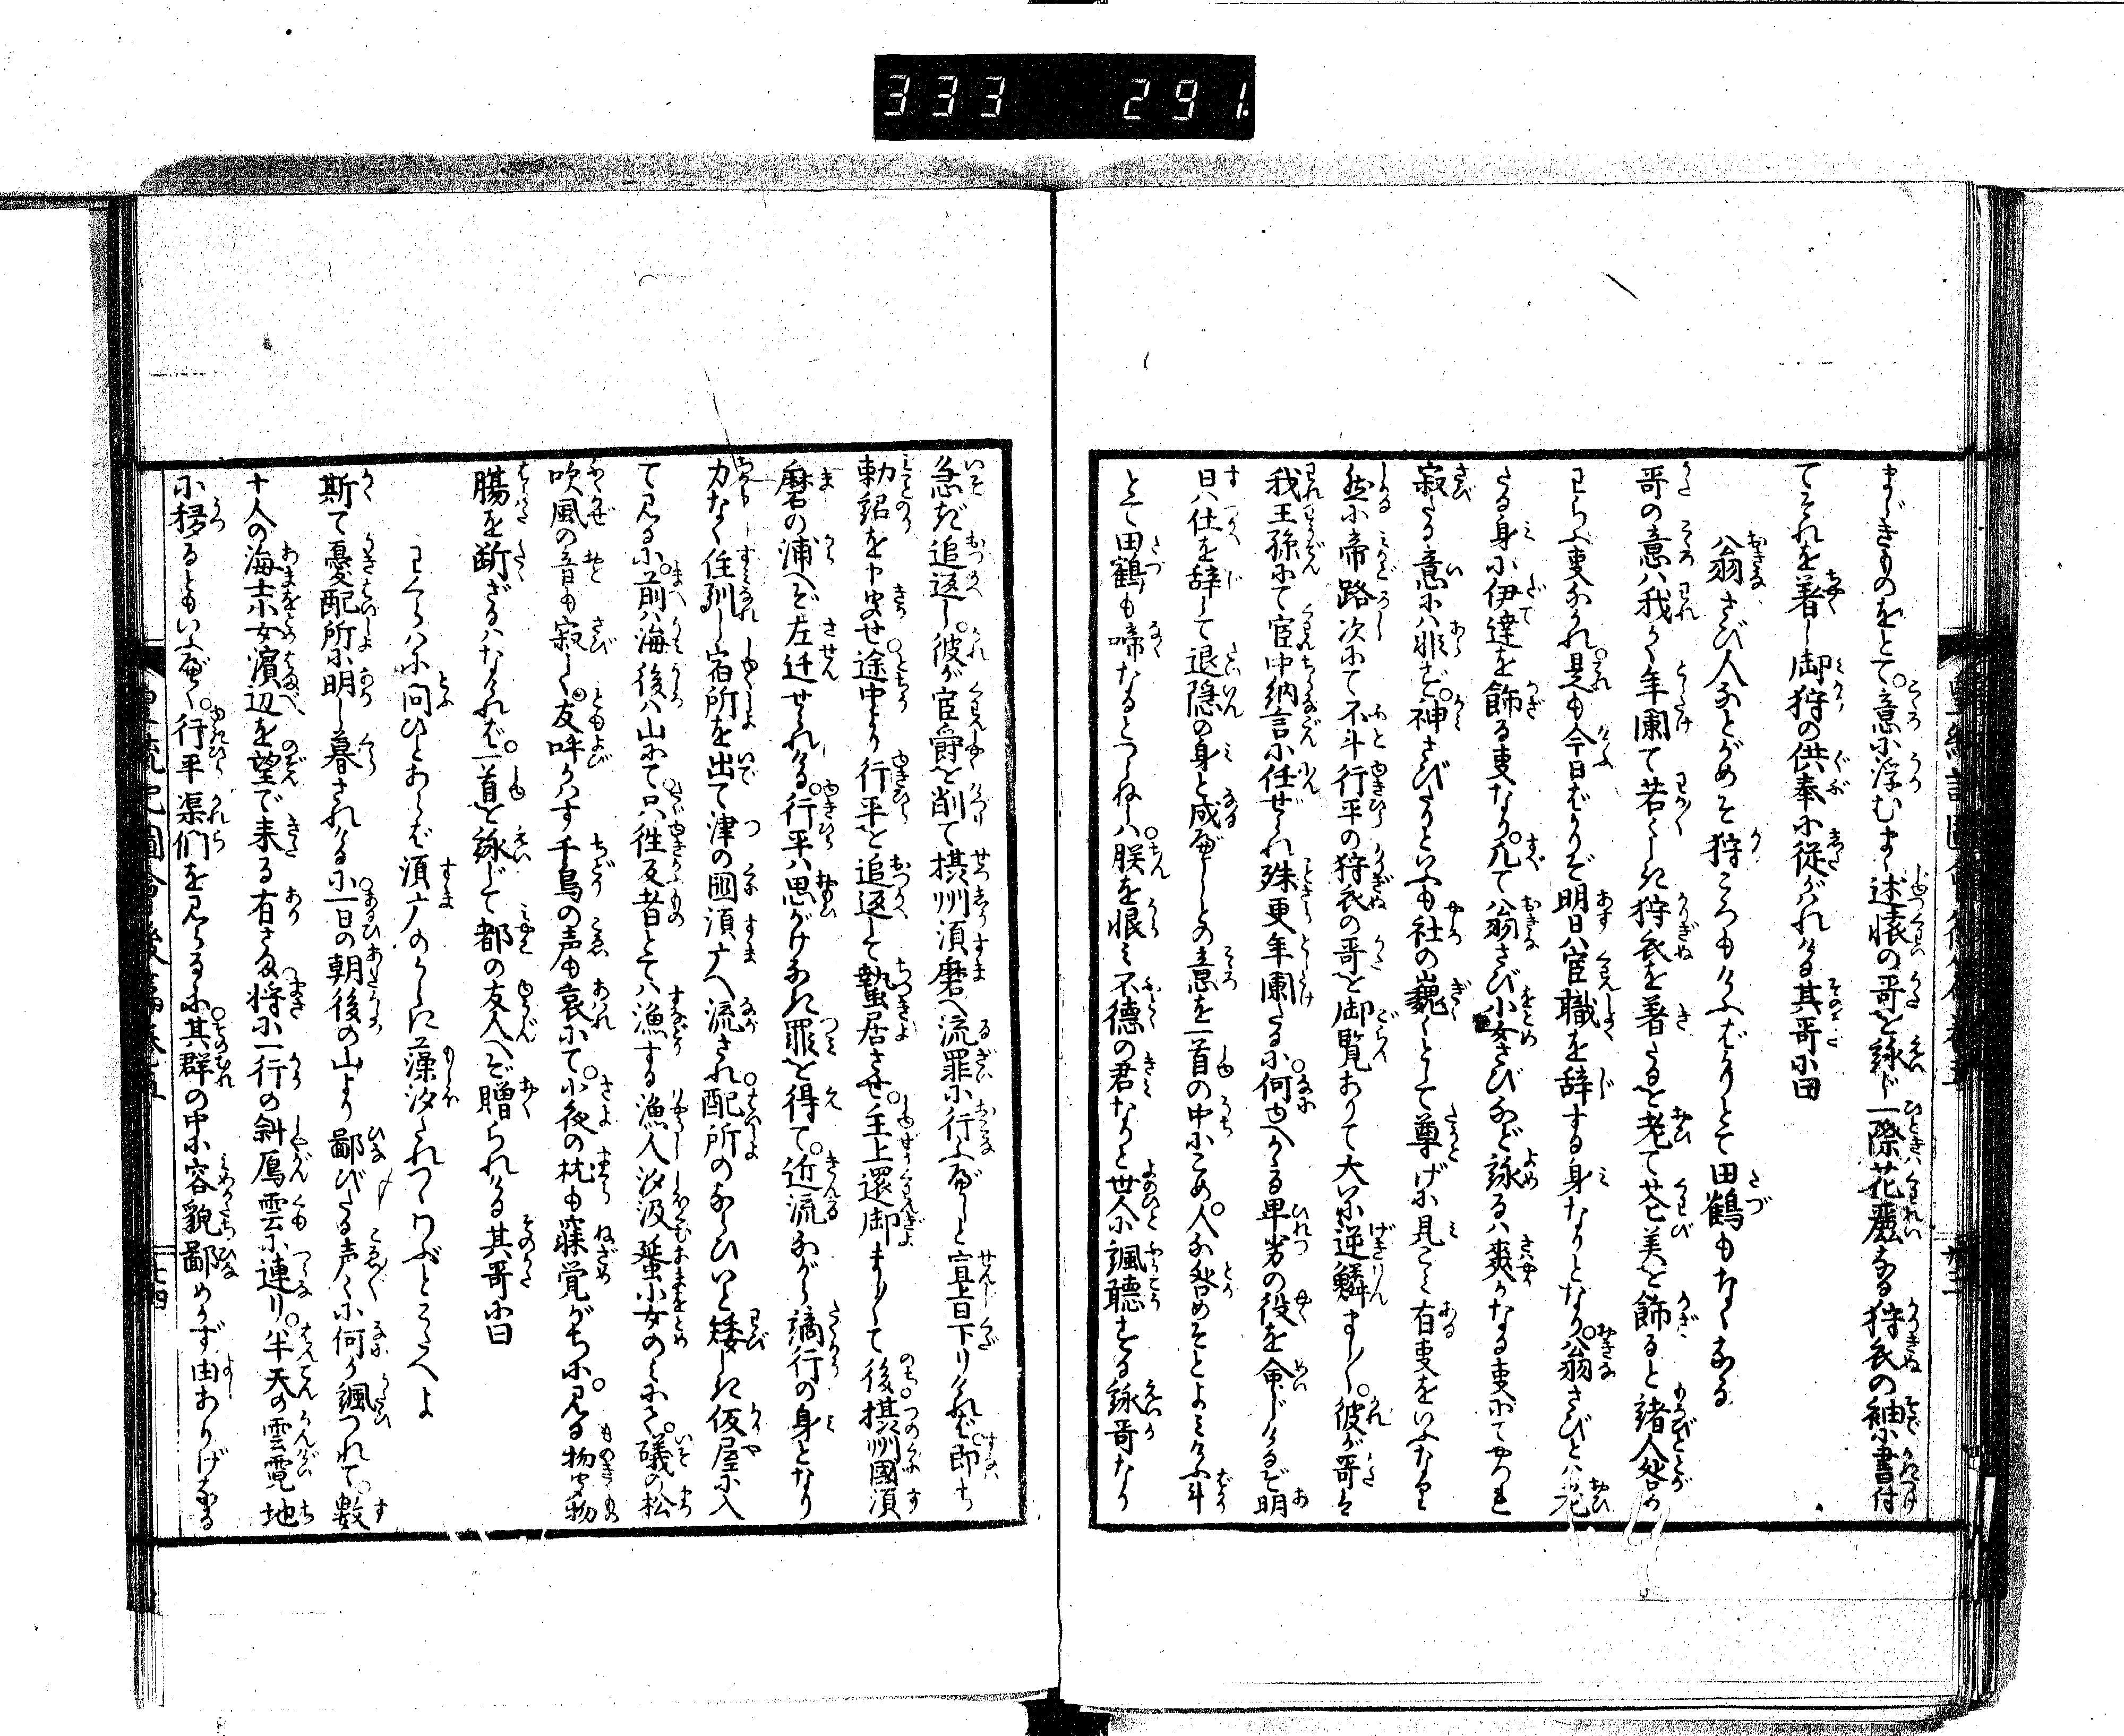 333 291.
まじきものをとて。意に浮むまゝ述懐の哥を詠じ一際花麗なる狩衣の袖に書付
てそれを著し御狩の供奉に従がはれける其哥に曰
翁さび人なとがめそ狩ころもけふばかりとて田鶴もなくなる
哥の意は我かく年闌て若々しき狩衣を著たるを老て芒美を飾ると諸人咎め
玉ふ事なかれ。是も今日ばかりぞ明日は官職を辞する身なりとなり。翁さびとは老
たる身に伊達を飾る事なり。凡て翁さび小女さびなど詠るは爽かなる事にてやつれ
寂たる意には非ず。神さびたりといふも社の巍々として尊げに見こみ有事をいふなり
然に帝路次にて不斗行平の狩衣の哥を御覧ありて大に逆鱗まし〳〵。彼が哥は
我王孫にて官中納言に任ぜられ殊更年闌たるに。何ゆへかゝる卑劣の役を命じけるぞ明
日は仕を辞して退隠の身と成べしとの意を一首の中にこめ。人な咎めそとよみけふ斗
とて田鶴も啼なるとつねしは。朕を恨み不徳の君なりと世人に諷聴せる詠哥なり
急ぎ追返し。彼が官爵を削て摂州須磨へ流罪に行ふべしと宣旨下りければ。即ち
勅詔を申きかせ。途中より行平を追返して蟄居させ。主上還御まし〳〵て後。摂州國須
磨の浦へぞ左迁せられける。行平は思がけなき罪を得て。近流ながら謫行の身となり
力なく住馴し宿所を出て津の國須广へ流され。配所のならひいと矮しき仮屋に入
て見るに。前は海後は山にて只往反者とては漁する漁人汐汲蜑小女のみにて。礒の松
吹風の音も寂しく。友呼かはす千鳥の声も哀にて。小夜の枕も寐覚がちに。見る物聞物
腸を断ざるはなければ。一首を詠じて都の友人へぞ贈られける其哥に曰
わくらはに問ひとあらば須广のうらに藻汐たれつゝわぶとこたへよ
斯て憂配所に明し暮されけるに。一日の朝後の山より鄙びたる声々に何か諷つれて。数
十人の海士小女濱辺を望で来る有さま。将に一行の斜鴈雲に連り。半天の雲霓地
に移るともいふべく。行平渠們を見らるゝに。其群の中に容貌鄙めかず由ありげなる